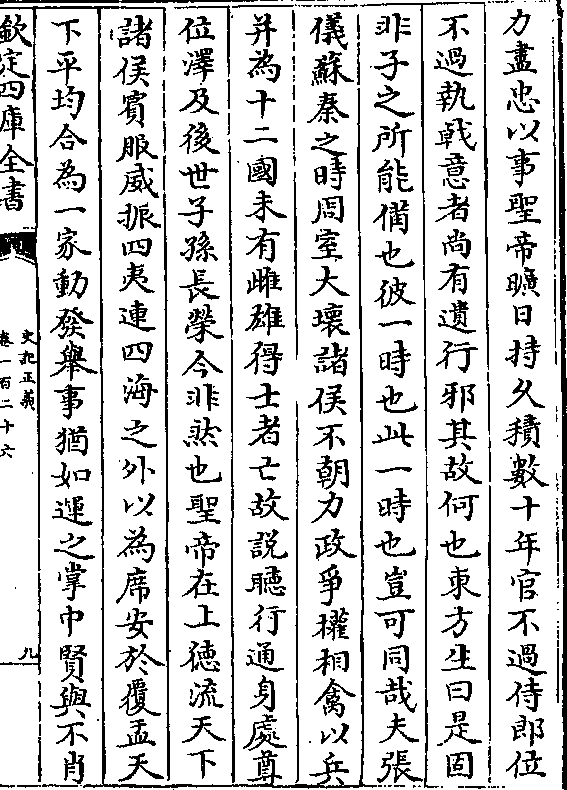 力盡忠以事聖帝曠日持久積數十年官不過侍郎位
不過執㦸意者尚有遺行邪其故何也東方生曰是固
非子之所能備也彼一時也此一時也豈可同哉夫張
儀蘇秦之時周室大壞諸侯不朝力政爭權相禽以兵
并為十二國未有雌雄得士者亡故説聽行通身處尊
位澤及後世子孫長榮今非然也聖帝在上徳流天下
諸侯賓服威振四夷連四海之外以為席安於覆盂天
下平均合為一家動發舉事猶如運之掌中賢與不肖
欽定四庫全書
史記正義
卷一百二十六
九